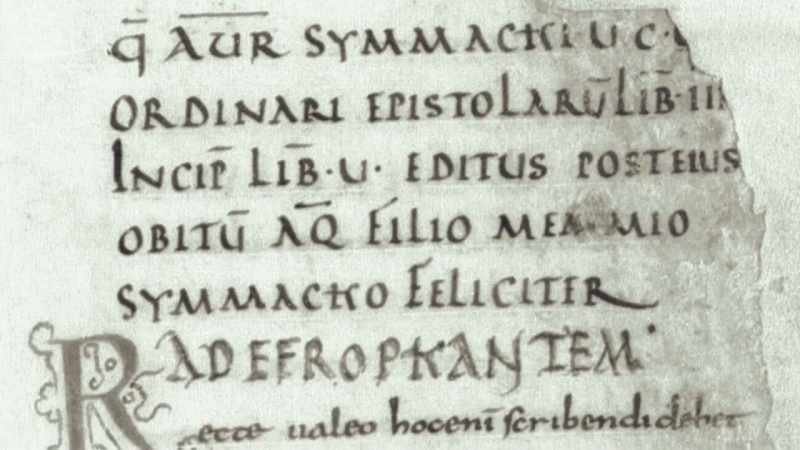 Q̄ AUR SYMMACHI U C ·
ORDINARI EPISTOLARŪ LIB̄ · III
INCIP̄ LIB̄ · U · EDITUS POST EIUS
OBITŪ AQ̄ FILIO MEMMIO
SYMMACHO FELICITER
R AD EFROPHANTEM ·
ecce ualeo hoc enī scribendi debet